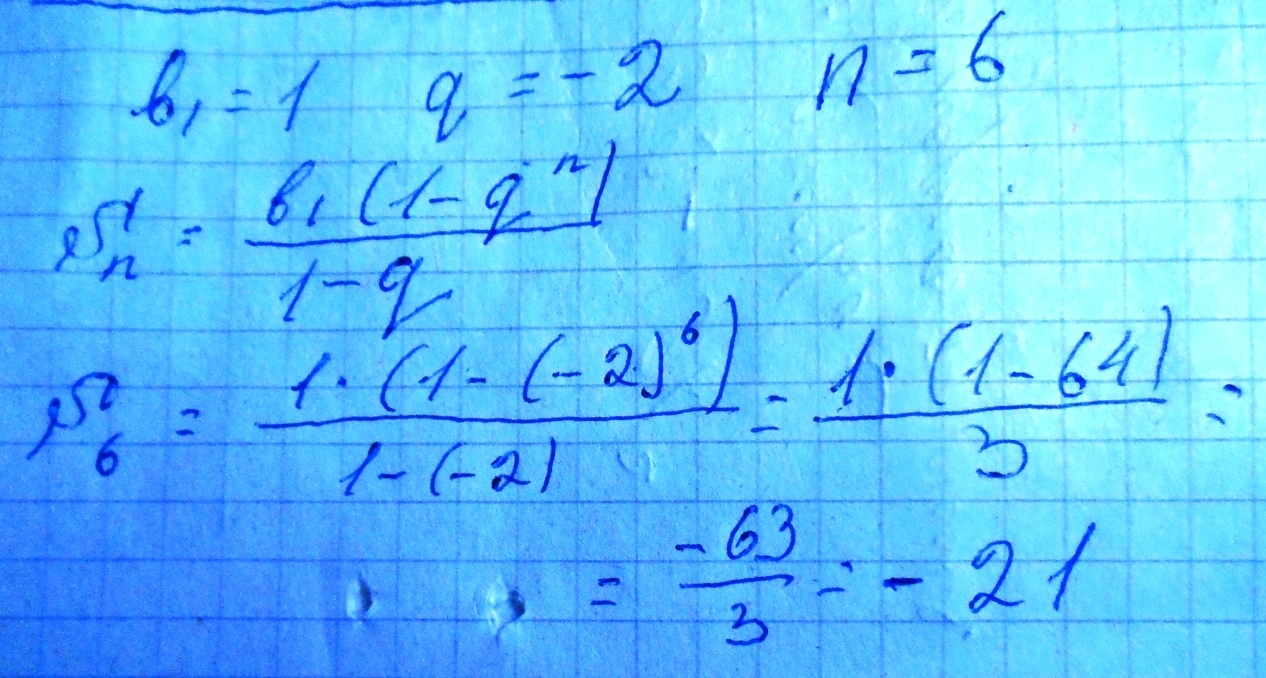 b₁ = 1 q = -2 n = 6
Sₙ = b₁ (1 - qⁿ) / 1 - q
S₆ = 1 · (1 - (-2)⁶) / 1 - (-2) = 1 · (1 - 64) / 3 =
= -63 / 3 = - 21